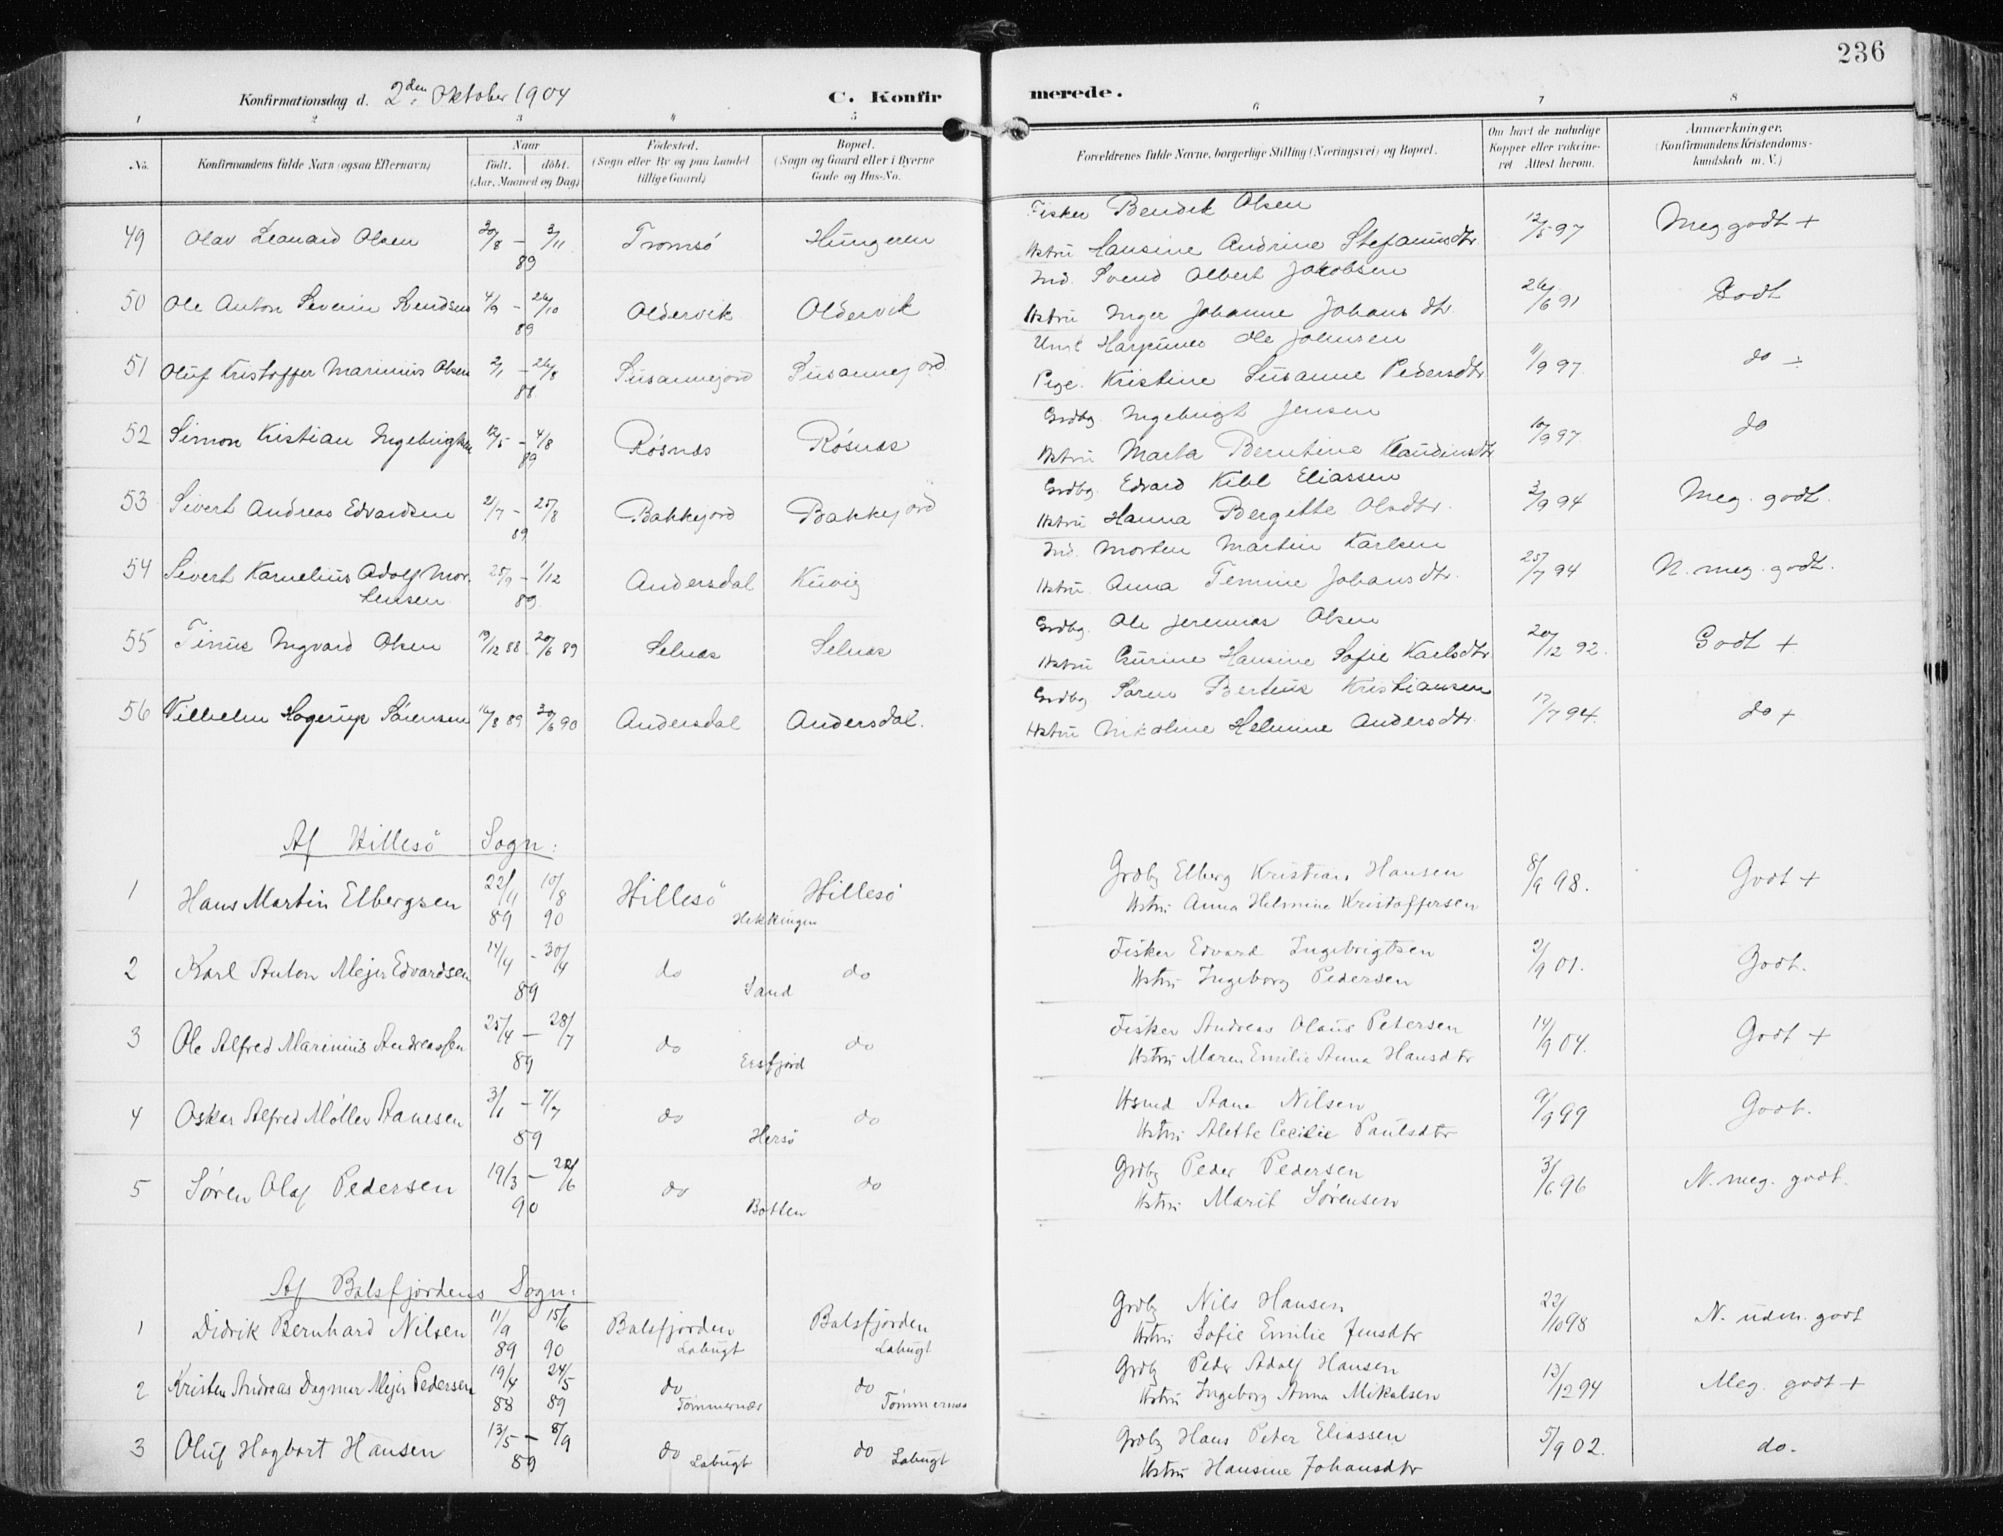 236
Konfirmationsdag d. 2den Oktober 1904
C. Konfirmerede.
1 2 3 4 5 6 7 8
No.
Konfirmandens fulde Navn (ogsaa Efternavn)
Naar
födt. döbt.
(Aar, Maaned og Dag)
Födested.
(Sogn eller By og paa Landet
tillige Gaard)
Bopæl.
(Sogn og Gaard eller i Byerne
Gade og Hus-No.
Forældrenes fulde Navne, borgerlige Stilling (Næringsvei) og Bopæl.
Om havt de naturlige
Kopper eller vakcineret
Attest herom.
Anmærkninger.
(Konfirmandens Kristendomskundskab
m. V.)
49 Olav Leonard Olsen 30/8 – 3/11 89 Tromsö Hungeren Fisker Bendik Olsen
Hstru Hansine Andrine Stefanusdtr 12/5 97 Meg godt +
50 Ole Anton Severin Svendsen 4/9 – 26/10 89 Oldervik Oldervik Ind. Svend Albert Jakobsen
Hstru Inger Johanne Johansdtr 26/6 91 Godt
51 Oluf Kristoffer Marinius Olsen 2/1 – 26/8 88 Susannejord Susannejord Umk Ole Johnsen
Pige. Kristine Susanne Pedersdtr 11/9 97 do ÷
52 Simon Kristian Ingebrigtsen 12/5 – 4/8 89 Røsnæs Røsnæs Grdbg. Ingebrigt Jensen
Hstru Marta Berntine Klaudiusdtr 10/9 97 do
53 Sivert Andreas Edvardsen 21/7 – 25/8 89 Bakkejord Bakkejord Grdbg. Edvard Kill Eliassen
Hstru Hanna Bergitte Olsdtr. 3/9 94 Meg. godt.
54 Sivert Kornelius Adolf Mortensen 25/9 – 1/12 89 Andersdal Kuvig Ind. Morten Martin Karlsen
Hstru. Anna Temine Johansdtr. 25/7 94 N. meg. godt.
55 Tinus Ingvard Olsen 19/12 88 – 20/6 89 Selnæs Selnæs Grdbg. Ole Jeremias Olsen
Hstru Gurine Hansine Sofie Karlsdtr 20/12 92. Godt +
56 Vilhelm Hagerup Sörensen 16/8 89 30/6 90 Andersdal Andersdal. Grdbg Sören Bertius Kristiansen
Hstru Nikoline Helmine Andersdtr. 17/7 94. do +
Af Hillesö Sogn:
1 Hans Martin Elbergsen 22/11 89 10/8 90 Hillesö Hillesö Hekkingen Grdbg Elberg Kristian Hansen
Hstru Anna Helmine Kristoffersen 8/9 98. Godt +
2 Karl Anton Mejer Edvardsen 14/4 – 30/4 89 do do Sand Fisker Edvard Ingebrigtsen
Hstru Ingeborg Pedersen 2/9 01. Godt.
3 Ole Alfred Marinius Andreassen 25/4 – 28/7 89 do do Ersfjord Fisker Andreas Olaus Petersen
Hstru Maren Emilie Anna Hansdtr 14/9 04. Godt +
4 Oskar Alfred Møller Aanesen 3/1 – 7/7 89 do do Hersö Husmd Aane Nilsen
Hstru Alette Cecilie Paulsdtr 9/9 99 Godt.
5 Søren Olaf Pedersen 19/3 – 22/6 90 do do Botten Grdbg Peder Pedersen
Hstru Marit Sørensen 3/6 96 N. meg. godt.
Af Balsfjordens Sogn:
1 Didrik Bernhard Nilsen 11/9 89 15/6 90 Balsfjorden Labugt Balsfjorden Labugt Grdbg Nils Hansen
Hstru Sofie Emilie Jensdtr 22/10 98 N. udm. godt
2 Kristen Andreas Dagmar Mejer Pedersen 19/4 88 24/5 89 do Tömmernæs do Tömmernæs Grdbg Peder Adolf Hansen
Hstru Ingeborg Anna Mikalsen 13/12 94 Meg. godt +
3 Oluf Hagbart Hansen 13/5 – 8/9 89 do Labugt do Labugt Grdbg Hans Peter Eliassen
Hstru Hansine Johansdtr 5/9 02. do.